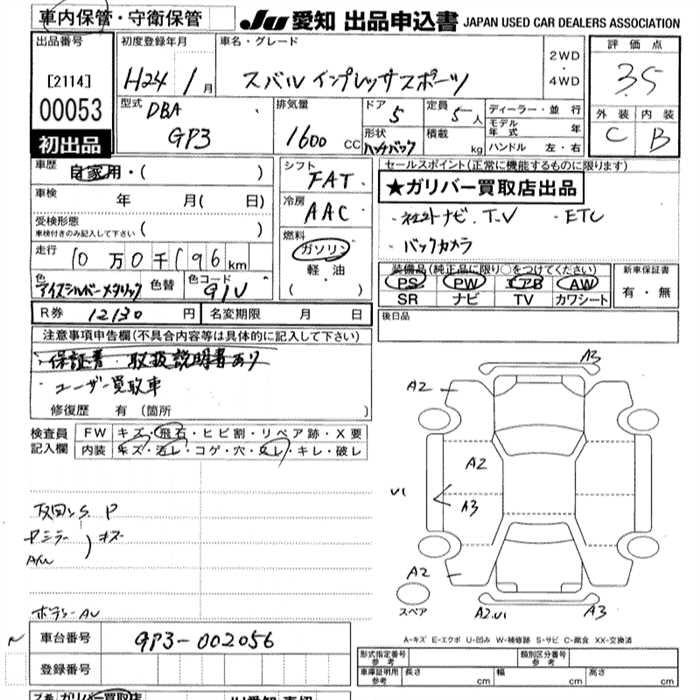 車内保管・守衛保管
JU 愛知 出品申込書 JAPAN USED CAR DEALERS ASSOCIATION
出品番号 初度登録年月 車名・グレード 2WD・4WD 評価点
[2114] H24 1月 スバル インプレッサスポーツ 3.5
00053
型式 DBA 排気量 ドア 定員 ディーラー・並行 外装 内装
GP3 1600 CC 5 5人 モデル年式 年 C B
初出品 形状 ハッチバック 積載 kg ハンドル 左・右
車歴 自家用・( ) シフト FAT セールスポイント(正常に機能するものに限ります)
★ガリバー買取店出品
車検 年 月( 日) 冷房 AAC
・社外ナビ.T.V ・ETC
受検形態 ( )
車検付きのみ記入して下さい
・バックカメラ
走行 10万0千196km 燃料 ガソリン・軽油・( )
装備品(純正品に限り○をつけてください) 新車保証書
色 アイスシルバーメタリック 色替 色コード G1U
PS PW エアB AW 有・無
SR ナビ TV カワシート
R券 12130円 名変期限 月 日 後日品
注意事項申告欄(不具合内容等は具体的に記入して下さい)
・保証書・取扱説明書あり
・ユーザー買取車
修復歴 有 (箇所 )
検査員記入欄 FW キズ・飛石・ヒビ割・リペア跡・X要
内装 キズ・汚レ・コゲ・穴・スレ・キレ・破レ
A3
A2
A2
U1 A3
S P
ドミラー キズ
A/W
A2
スペア A2.U1 A3
A-キズ E-エクボ U-凹み W-補修跡 S-サビ C-腐食 XX-交換済
車台番号 GP3-002056
登録番号
形式指定番号 参考 類別区分番号 参考
車庫証明用 参考 長さ cm 幅 cm 高さ cm
ガリバー買取店